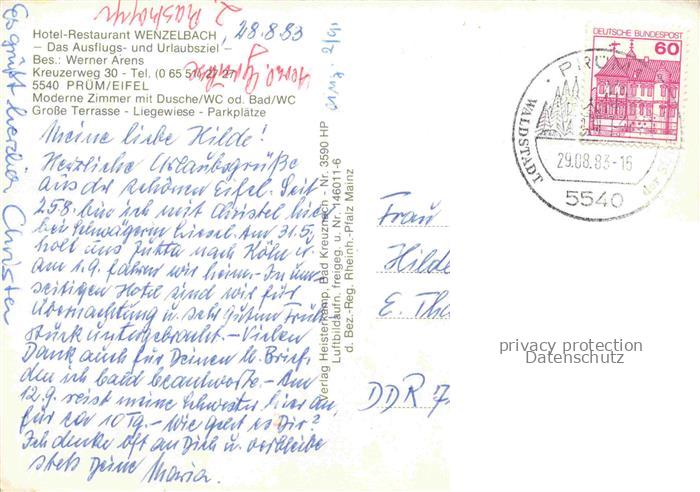 Hotel-Restaurant WENZELBACH
– Das Ausflugs- und Urlaubsziel –
Bes.: Werner Arens
Kreuzerweg 30 - Tel. (0 65 51)
5540 PRÜM/EIFEL
Moderne Zimmer mit Dusche/WC od. Bad/WC
Große Terrasse - Liegewiese - Parkplätze
28.8.83
Meine liebe Hilde!
Herzliche Urlaubsgrüße
aus der schönen Eifel. Seit
258. bin ich mit Christel hier
bei Schwägerin Liesel. Am 31.5
holt uns Jutta nach Köln u.
am 1.9. fahren wir heim. In um-
seitigen Hotel sind wir für
Übernachtung u. sehr gutem Früh
stück untergebracht. – Vielen
Dank auch für Deinen lb. Brief,
den ich bald beantworte. – Am
12.9. reist meine Schwester hier an,
für ca 10 Tg. – Wie geht es Dir?
Ich denke oft an Dich u. verbleibe
stets Deine Maria.
Es grüßt herzlich Christel
Verlag Heisterkamp, Bad Kreuznach - Nr. 3590 HP
Luftbildaufn. freigeg. u. Nr. 146011-6
d. Bez.-Reg. Rheinh.-Pfalz Mainz
DEUTSCHE BUNDESPOST
60
PRÜM
WALDSTADT
29.08.83-16
5540
Frau
Hilde
E. Tha
DDR 7
privacy protection
Datenschutz